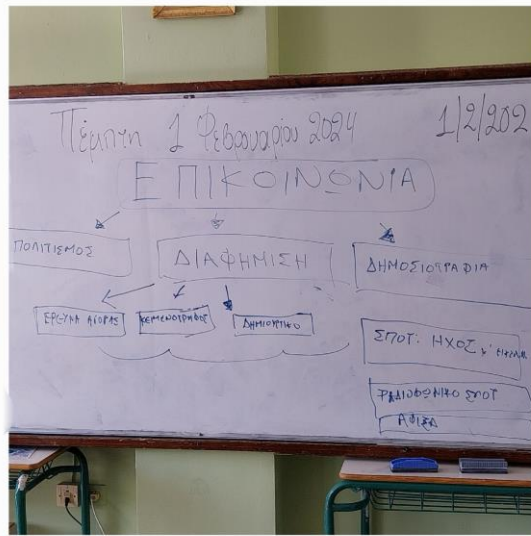 Πέμπτη 1 Φεβρουαρίου 2024 1/2/202
ΕΠΙΚΟΙΝΩΝΙΑ
ΠΟΛΙΤΙΣΜΟΣ ΔΙΑΦΗΜΙΣΗ ΔΗΜΟΣΙΟΓΡΑΦΙΑ
ΕΡΕΥΝΑ ΑΓΟΡΑΣ ΚΕΙΜΕΝΟΓΡΑΦΟΣ ΔΗΜΙΟΥΡΓΙΚΟ
ΣΠΟΤ: ΗΧΟΣ
ΡΑΔΙΟΦΩΝΙΚΟ ΣΠΟΤ
ΑΦΙΣΑ